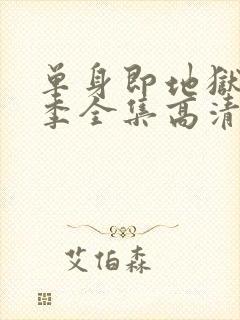 单身即地獄
季全集高清
艾伯森